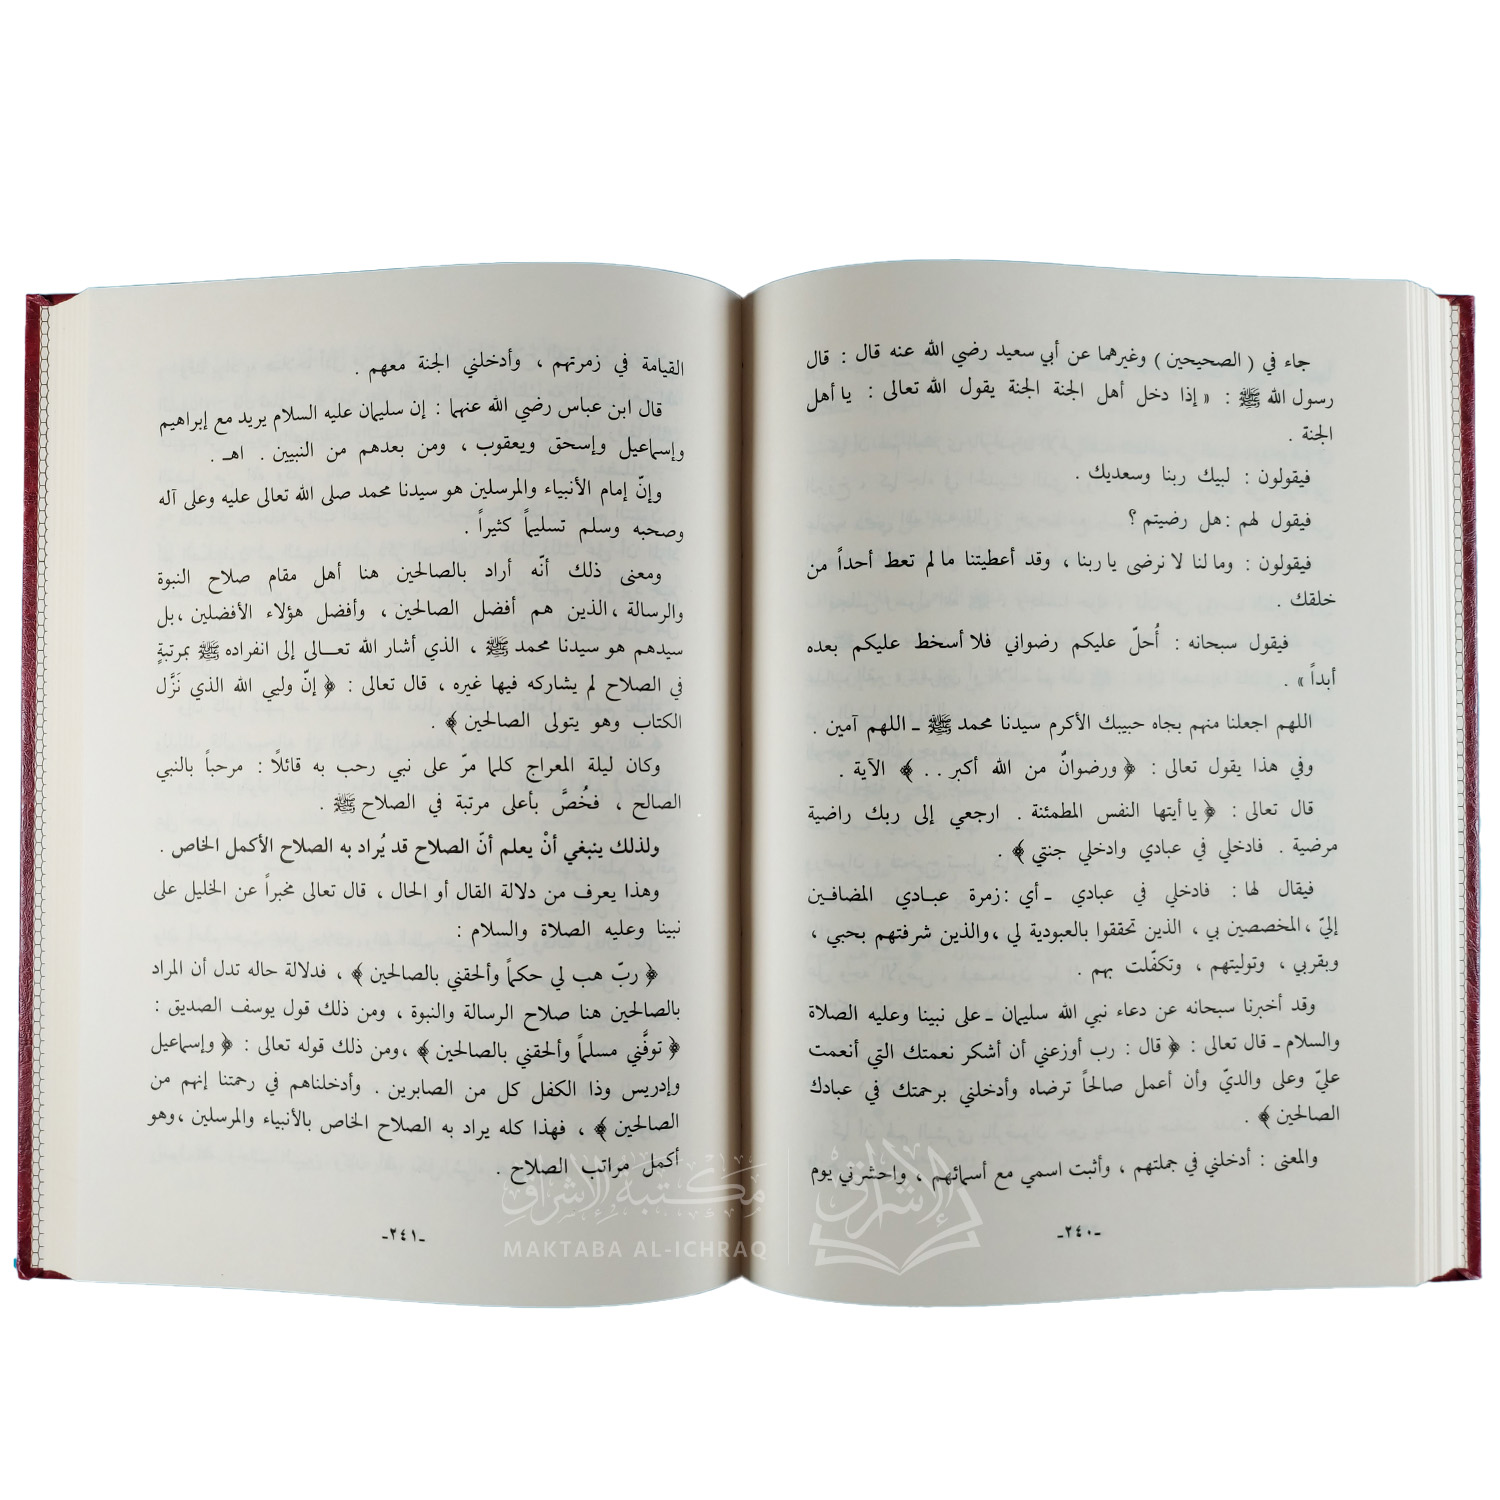 جاء في ( الصحيحين ) وغيرهما عن أبي سعيد رضي الله عنه قال : قال
رسول الله ﷺ : « إذا دخل أهل الجنة الجنة يقول الله تعالى : يا أهل
الجنة .
فيقولون : لبيك ربنا وسعديك .
فيقول لهم : هل رضيتم ؟
فيقولون : وما لنا لا نرضى يا ربنا ، وقد أعطيتنا ما لم تعط أحداً من
خلقك .
فيقول سبحانه : أُحلّ عليكم رضواني فلا أسخط عليكم بعده
أبداً » .
اللهم اجعلنا منهم بجاه حبيبك الأكرم سيدنا محمد ﷺ ـ اللهم آمين .
وفي هذا يقول تعالى : ﴿ ورضوانٌ من الله أكبر . . ﴾ الآية .
قال تعالى : ﴿ يا أيتها النفس المطمئنة . ارجعي إلى ربك راضية
مرضية . فادخلي في عبادي وادخلي جنتي ﴾ .
فيقال لها : فادخلي في عبادي ـ أي : زمرة عبادي المضافين
إليّ ، المخصصين بي ، الذين تحققوا بالعبودية لي ، والذين شرفتهم بحبي ،
وبقربي ، وتوليتهم ، وتكفّلت بهم .
وقد أخبرنا سبحانه عن دعاء نبي الله سليمان ـ على نبينا وعليه الصلاة
والسلام ـ قال تعالى : ﴿ قال : رب أوزعني أن أشكر نعمتك التي أنعمت
عليّ وعلى والديّ وأن أعمل صالحاً ترضاه وأدخلني برحمتك في عبادك
الصالحين ﴾ .
والمعنى : أدخلني في جملتهم ، وأثبت اسمي مع أسمائهم ، واحشرني يوم
ـ ٢٤٠ ـ
القيامة في زمرتهم ، وأدخلني الجنة معهم .
قال ابن عباس رضي الله عنهما : إن سليمان عليه السلام يريد مع إبراهيم
وإسماعيل وإسحق ويعقوب ، ومن بعدهم من النبيين . اهـ .
وإنّ إمام الأنبياء والمرسلين هو سيدنا محمد صلى الله تعالى عليه وعلى آله
وصحبه وسلم تسليماً كثيراً .
ومعنى ذلك أنّه أراد بالصالحين هنا أهل مقام صلاح النبوة
والرسالة ، الذين هم أفضل الصالحين ، وأفضل هؤلاء الأفضلين ، بل
سيدهم هو سيدنا محمد ﷺ ، الذي أشار الله تعـالى إلى انفراده ﷺ بمرتبةٍ
في الصلاح لم يشاركه فيها غيره ، قال تعالى : ﴿ إنّ وليي الله الذي نَزَّل
الكتاب وهو يتولى الصالحين ﴾ .
وكان ليلة المعراج كلما مرّ على نبي رحب به قائلاً : مرحباً بالنبي
الصالح ، فخُصَّ بأعلى مرتبة في الصلاح ﷺ .
ولذلك ينبغي أنْ يعلم أنّ الصلاح قد يُراد به الصلاح الأكمل الخاص .
وهذا يعرف من دلالة القال أو الحال ، قال تعالى مخبراً عن الخليل على
نبينا وعليه الصلاة والسلام :
﴿ ربّ هب لي حكماً وألحقني بالصالحين ﴾ ، فدلالة حاله تدل أن المراد
بالصالحين هنا صلاح الرسالة والنبوة ، ومن ذلك قول يوسف الصديق :
﴿ توفَّني مسلماً وألحقني بالصالحين ﴾ ، ومن ذلك قوله تعالى : ﴿ وإسماعيل
وإدريس وذا الكفل كل من الصابرين . وأدخلناهم في رحمتنا إنهم من
الصالحين ﴾ ، فهذا كله يراد به الصلاح الخاص بالأنبياء والمرسلين ، وهو
أكمل مراتب الصلاح .
ـ ٢٤١ ـ
مكتبة الإشراق
MAKTABA AL-ICHRAQ
الإشراق